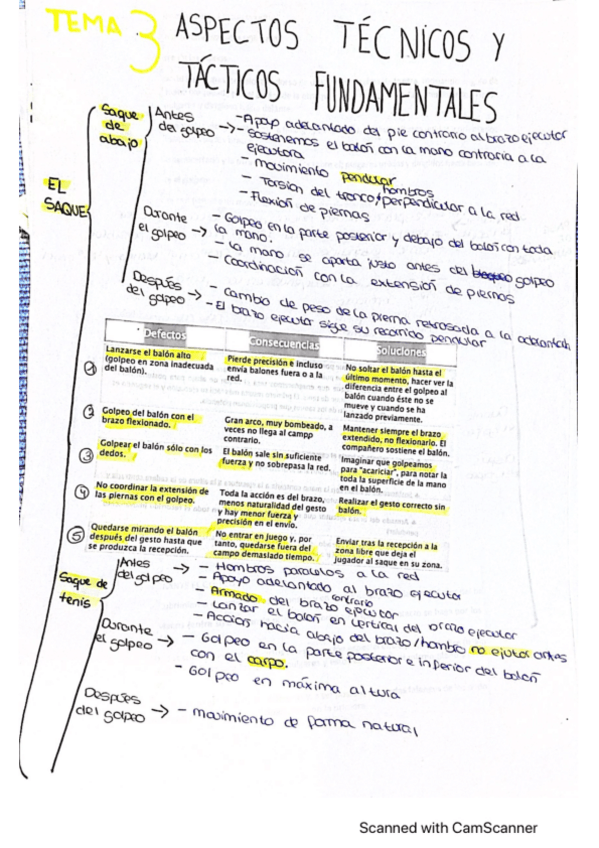 TEMA 3 ASPECTOS TÉCNICOS Y
TÁCTICOS FUNDAMENTALES
EL
SAQUE
Saque
de
abajo
Antes
del golpeo
- Apoyo adelantado del pie contrario al brazo ejecutor
- Sostenemos el balón con la mano contraria a la
ejecutora
- movimiento pendular
- Torsion del tronco, hombros perpendicular a la red
- Flexión de piernas
Durante
el golpeo
- Golpeo en la parte posterior y debajo del balón con toda
la mano.
- La mano se aparta justo antes del golpeo
- Coordinación con la extensión de piernas
Después
del golpeo
- Cambio de peso de la pierna retrasada a la adelantada
- El brazo ejecutor sigue su recorrido pendular
Defectos Consecuencias Soluciones
1 Lanzarse el balón alto
(golpeo en zona inadecuada
del balón).
Pierde precisión e incluso
envía balones fuera o a la
red.
No soltar el balón hasta el
último momento, hacer ver la
diferencia entre el golpeo al
balón cuando éste no se
mueve y cuando se ha
lanzado previamente.
2 Golpeo del balón con el
brazo flexionado.
Gran arco, muy bombeado, a
veces no llega al campp
contrario.
Mantener siempre el brazo
extendido, no flexionarlo. El
compañero sostiene el balón.
3 Golpear el balón sólo con los
dedos.
El balón sale sin suficiente
fuerza y no sobrepasa la red.
Imaginar que golpeamos
para "acariciar", para notar la
toda la superficie de la mano
en el balón.
4 No coordinar la extensión de
las piernas con el golpeo.
Toda la acción es del brazo,
menos naturalidad del gesto
y hay menor fuerza y
precisión en el envío.
Realizar el gesto correcto sin
balón.
5 Quedarse mirando el balón
después del gesto hasta que
se produzca la recepción.
No entrar en juego y, por
tanto, quedarse fuera del
campo demasiado tiempo.
Enviar tras la recepción a la
zona libre que deja el
jugador al saque en su zona.
Saque de
tenis
Antes
del golpeo
- Hombros paralelos a la red
- Apoyo adelantado al brazo ejecutor
contrario
- Armado del brazo ejecutor
- Lanzar el balón en vertical del brazo ejecutor
- Accion hacia abajo del brazo/hombro no ejutor antes
Durante
el golpeo
- Golpeo en la parte posterior e inferior del balón
con el carpo.
- Golpeo en máxima altura
Después
del golpeo
- movimiento de forma natural
Scanned with CamScanner